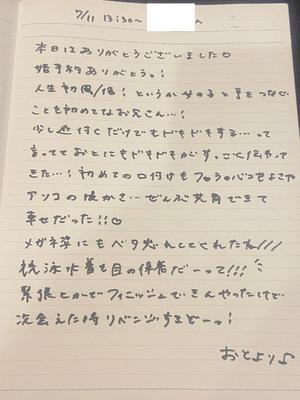 7/11 13:30〜 へ
本日はありがとうございました♡
ありがとうっ!
人生初風/俗!というか女の子と手をつなぐ
ことも初めてなお兄さん…!
少し近付くだけでもドキドキする…って
言ってておとにもドキドキがすっごく伝わって
きた…!初めての口付けも
アソコの暖かさ…ぜんぶ共有できて
幸せだった!!♡
メガネ姿にもベタ惚れしてくれたね///
競泳水着も目の保養だーって!!!
緊張とかでフィニッシュできんやったけど
次会えた時リベンジするどーっ!
おとより♪